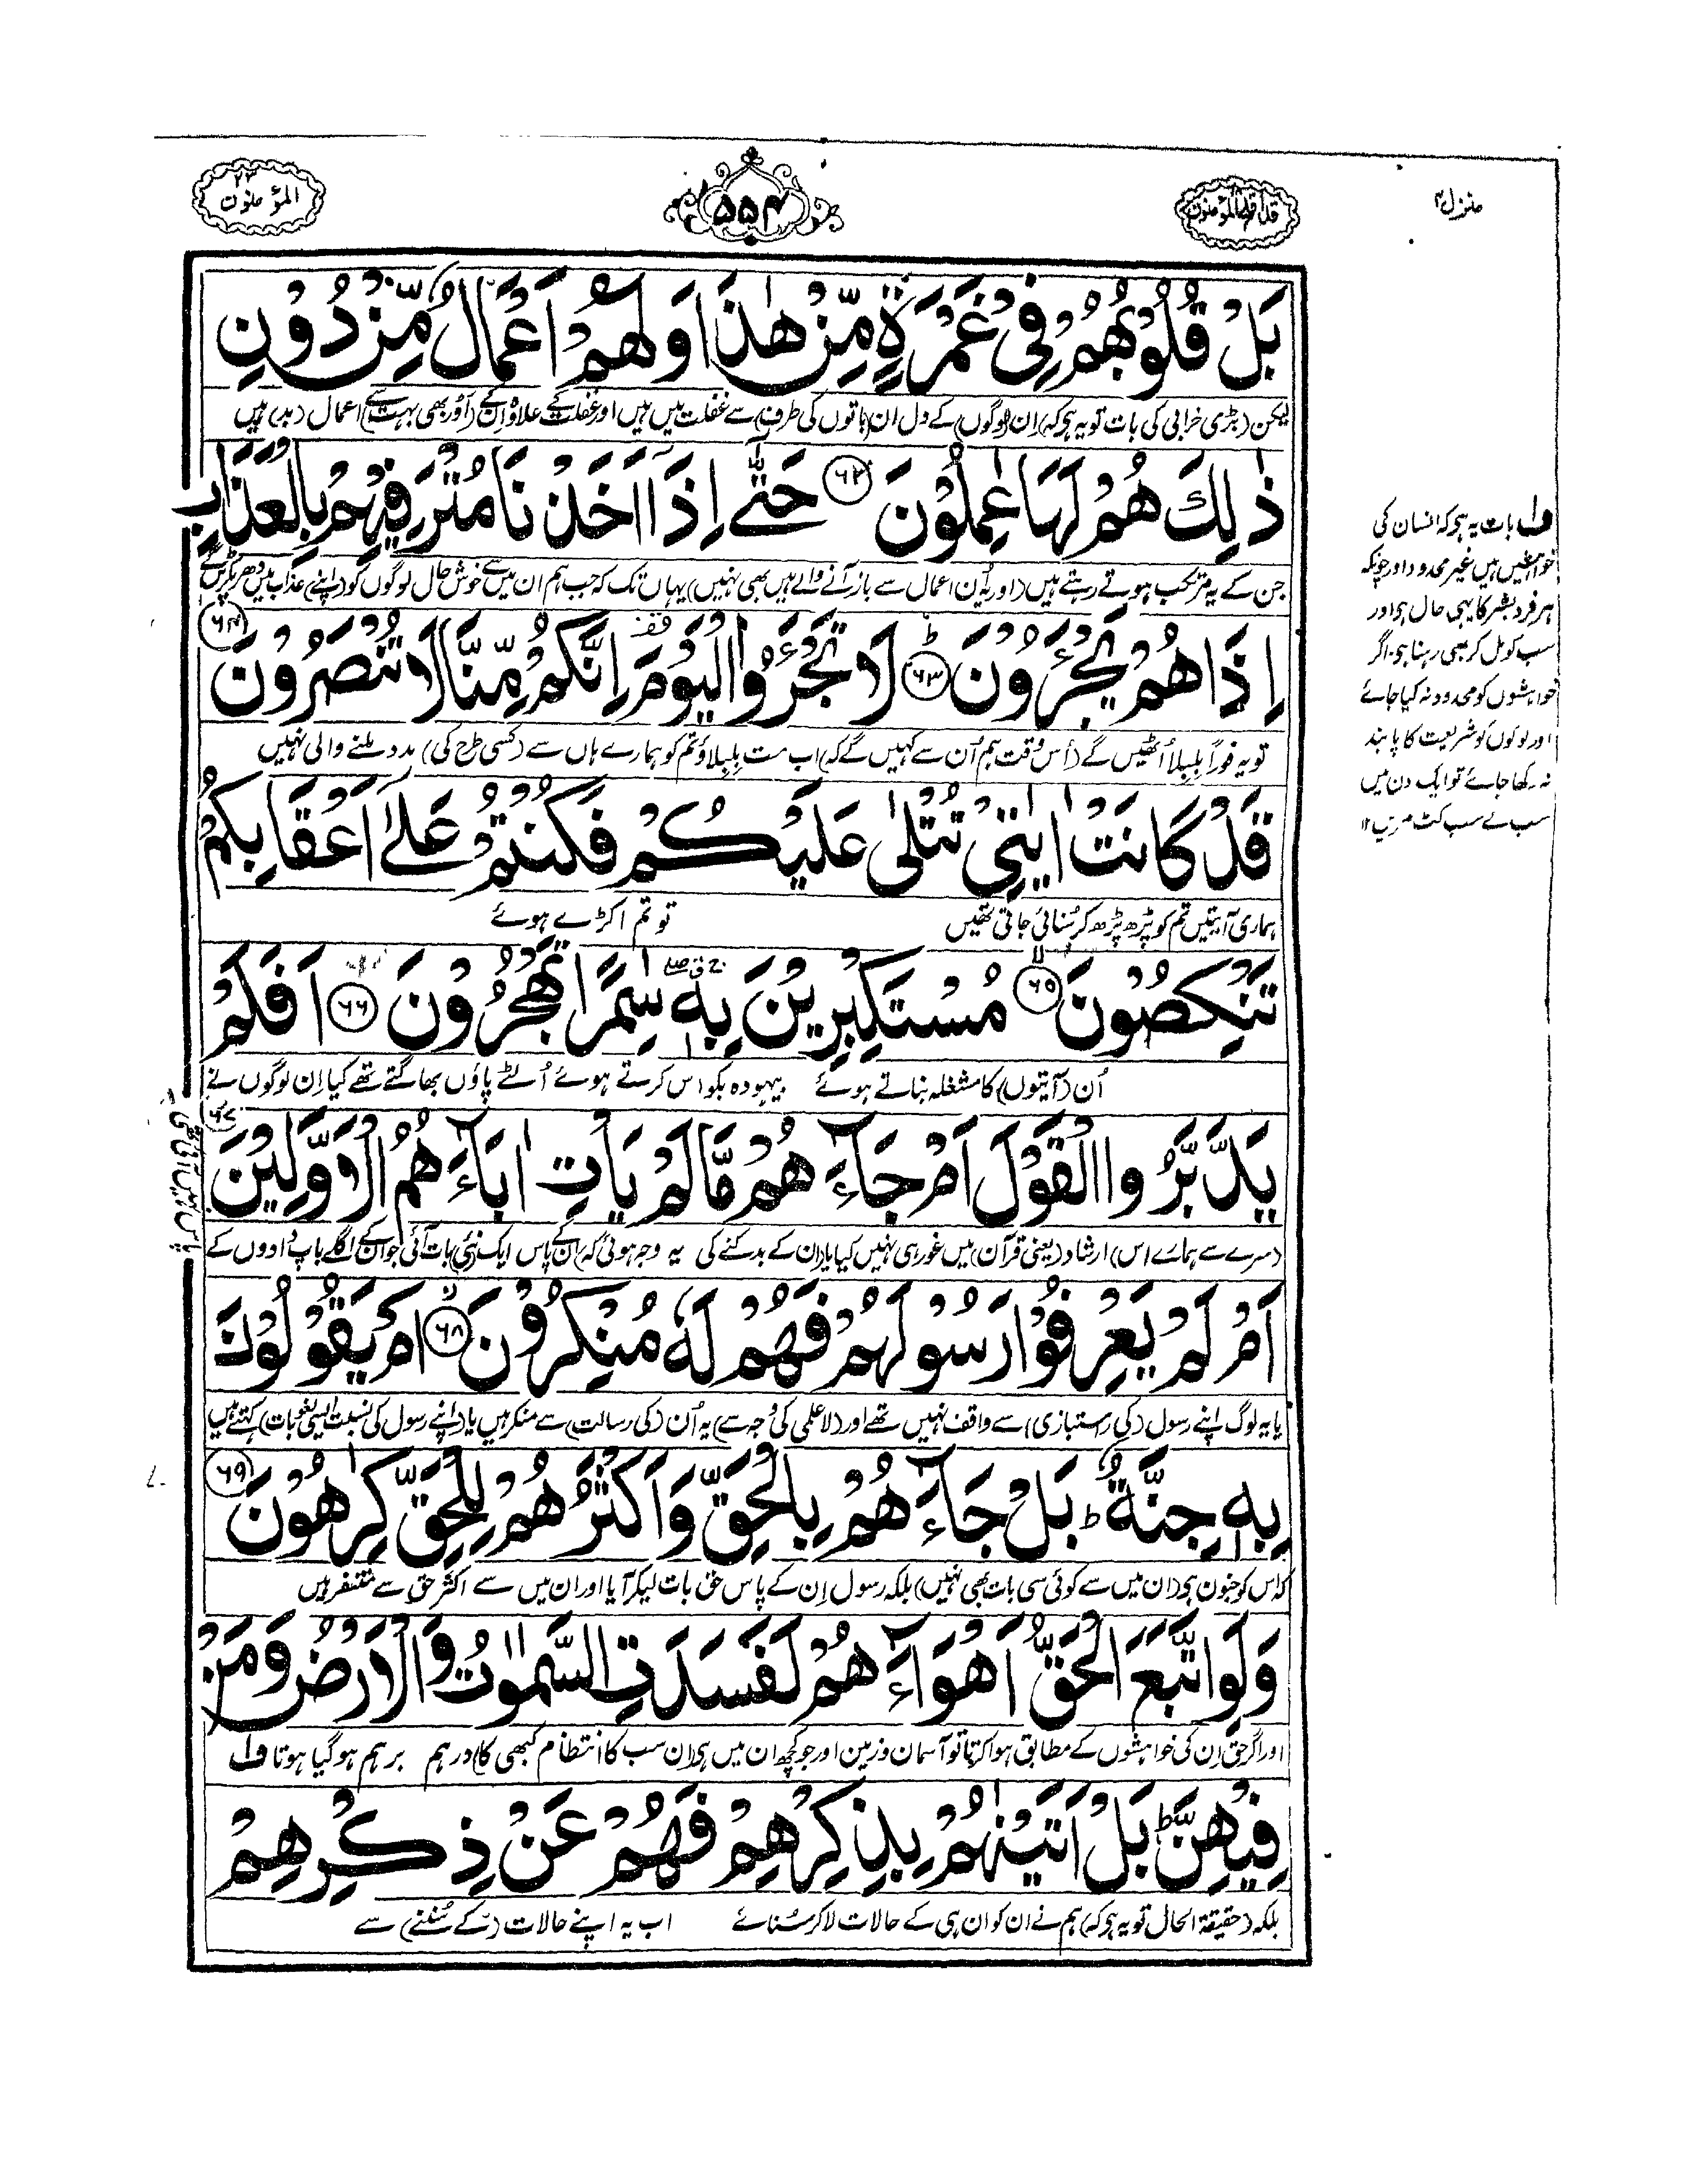 منزل۴
قد افلح المؤمنون
۵۵۴
المؤمنون ۲۳
بَلْ قُلُوْبُهُمْ فِیْ غَمْرَةٍ مِّنْ هٰذَا وَلَهُمْ اَعْمَالٌ مِّنْ دُوْنِ
لیکن (بڑی خرابی کی بات تو یہ ہو کہ) اِن (لوگوں) کے دل ان (باتوں کی طرف) سے غفلت میں ہیں اور غفلت کے علاوہ اِن کے (اَور بھی بہت سے) اعمال (بد) ہیں
ذٰلِكَ هُمْ لَهَا عٰمِلُوْنَ ۶۲ حَتّٰۤی اِذَاۤ اَخَذْنَا مُتْرَفِیْهِمْ بِالْعَذَابِ
جن کے یہ مرتکب ہوتے رہتے ہیں (اور یہ اُن اعمال سے باز آنے والے ہیں بھی نہیں) یہاں تک کہ جب ہم ان میں سے خوش حال لوگوں کو (اپنے) عذاب میں دھر پکڑیں گے
اِذَا هُمْ یَجْـَٔرُوْنَ ۶۳ لَا تَجْـَٔرُوا الْیَوْمَ اِنَّكُمْ مِّنَّا لَا تُنْصَرُوْنَ ۶۴
تو یہ فوراً بلبلا اُٹھیں گے (اُس وقت ہم اُن سے کہیں گے کہ) اب مت بلبلاؤ تم کو ہمارے ہاں سے (کسی طرح کی) مدد ملنے والی نہیں
قَدْ كَانَتْ اٰیٰتِیْ تُتْلٰی عَلَیْكُمْ فَكُنْتُمْ عَلٰۤی اَعْقَابِكُمْ
ہماری آیتیں تم کو پڑھ پڑھ کر سُنائی جاتی تھیں تو تم اکڑے ہوئے
تَنْكِصُوْنَ ۶۵ مُسْتَكْبِرِیْنَ بِهٖ سٰمِرًا تَهْجُرُوْنَ ۶۶ اَفَلَمْ
اُن (آیتوں) کا مشغلہ بناتے ہوئے بیہودہ بکواس کرتے ہوئے اُلٹے پاؤں بھاگتے تھے کیا اِن لوگوں نے
یَدَّبَّرُوا الْقَوْلَ اَمْ جَآءَهُمْ مَّا لَمْ یَاْتِ اٰبَآءَهُمُ الْاَوَّلِیْنَ ۶۷
(سرے سے ہمارے اس) ارشاد (یعنی قرآن) میں غور ہی نہیں کیا یا (ان کے بدکنے کی یہ وجہ ہوئی کہ) ان کے پاس ایک (نئی) بات آئی جو ان کے اگلے باپ داووں کے
اَمْ لَمْ یَعْرِفُوْا رَسُوْلَهُمْ فَهُمْ لَهٗ مُنْكِرُوْنَ ۶۸ اَمْ یَقُوْلُوْنَ
یا یہ لوگ اپنے رسول (کی راستبازی) سے واقف نہیں تھے اور (لاعلمی کی وجہ سے) یہ اُن (کی رسالت) سے منکر ہیں یا (اپنے رسول کی نسبت ایسی لغو بات) کہتے ہیں
بِهٖ جِنَّةٌ بَلْ جَآءَهُمْ بِالْحَقِّ وَاَكْثَرُهُمْ لِلْحَقِّ كٰرِهُوْنَ ۶۹
کہ اس کو جنون ہو (ان میں سے کوئی سی بات بھی نہیں) بلکہ رسول اِن کے پاس حق بات لیکر آیا اور ان میں سے اکثر حق سے متنفر ہیں
وَلَوِ اتَّبَعَ الْحَقُّ اَهْوَآءَهُمْ لَفَسَدَتِ السَّمٰوٰتُ وَالْاَرْضُ وَمَنْ
اور اگر حق اِن کی خواہشوں کے مطابق ہوا کرتا تو آسمان وزمین اور جو کچھ ان میں ہو (ان سب کا انتظام کبھی کا) درہم برہم ہو گیا ہوتا ف۱
فِیْهِنَّ بَلْ اَتَیْنٰهُمْ بِذِكْرِهِمْ فَهُمْ عَنْ ذِكْرِهِمْ
بلکہ (حقیقۃ الحال تو یہ ہو کہ) ہم نے ان کو ان ہی کے حالات لا کر سُنائے اب یہ اپنے حالات (کے سُننے) سے
ف۱ بات یہ ہو کہ انسان کی
خواہشیں ہیں غیر محدود اور چونکہ
ہر فرد بشر کا یہی حال ہو اور
سب کو مل کر بھی رہنا ہو۔ اگر
خواہشوں کو محدود نہ کیا جائے
اور لوگوں کو شریعت کا پابند
نہ رکھا جائے تو ایک دن میں
سب کے سب کٹ مریں ۱۲